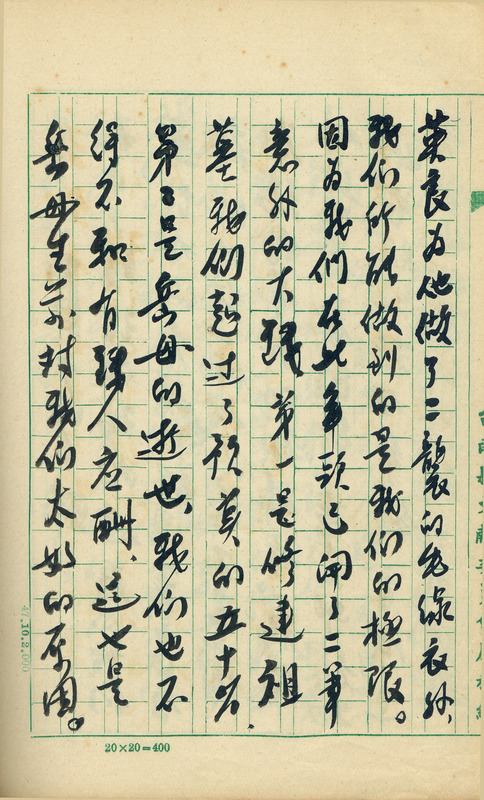 英良为他做了二袭的毛線衣外、
我们所能做到的是我们的極限。
因为我们在此年頭已開了二筆
意外的大錢 第一是修建祖
墓 我们超过了預算的五十%.
第二是岳母的逝世、我们也不
得不和有錢人应酬、這也是
岳母生前对我们太好的原因。
20×20=400
47.10.2.000